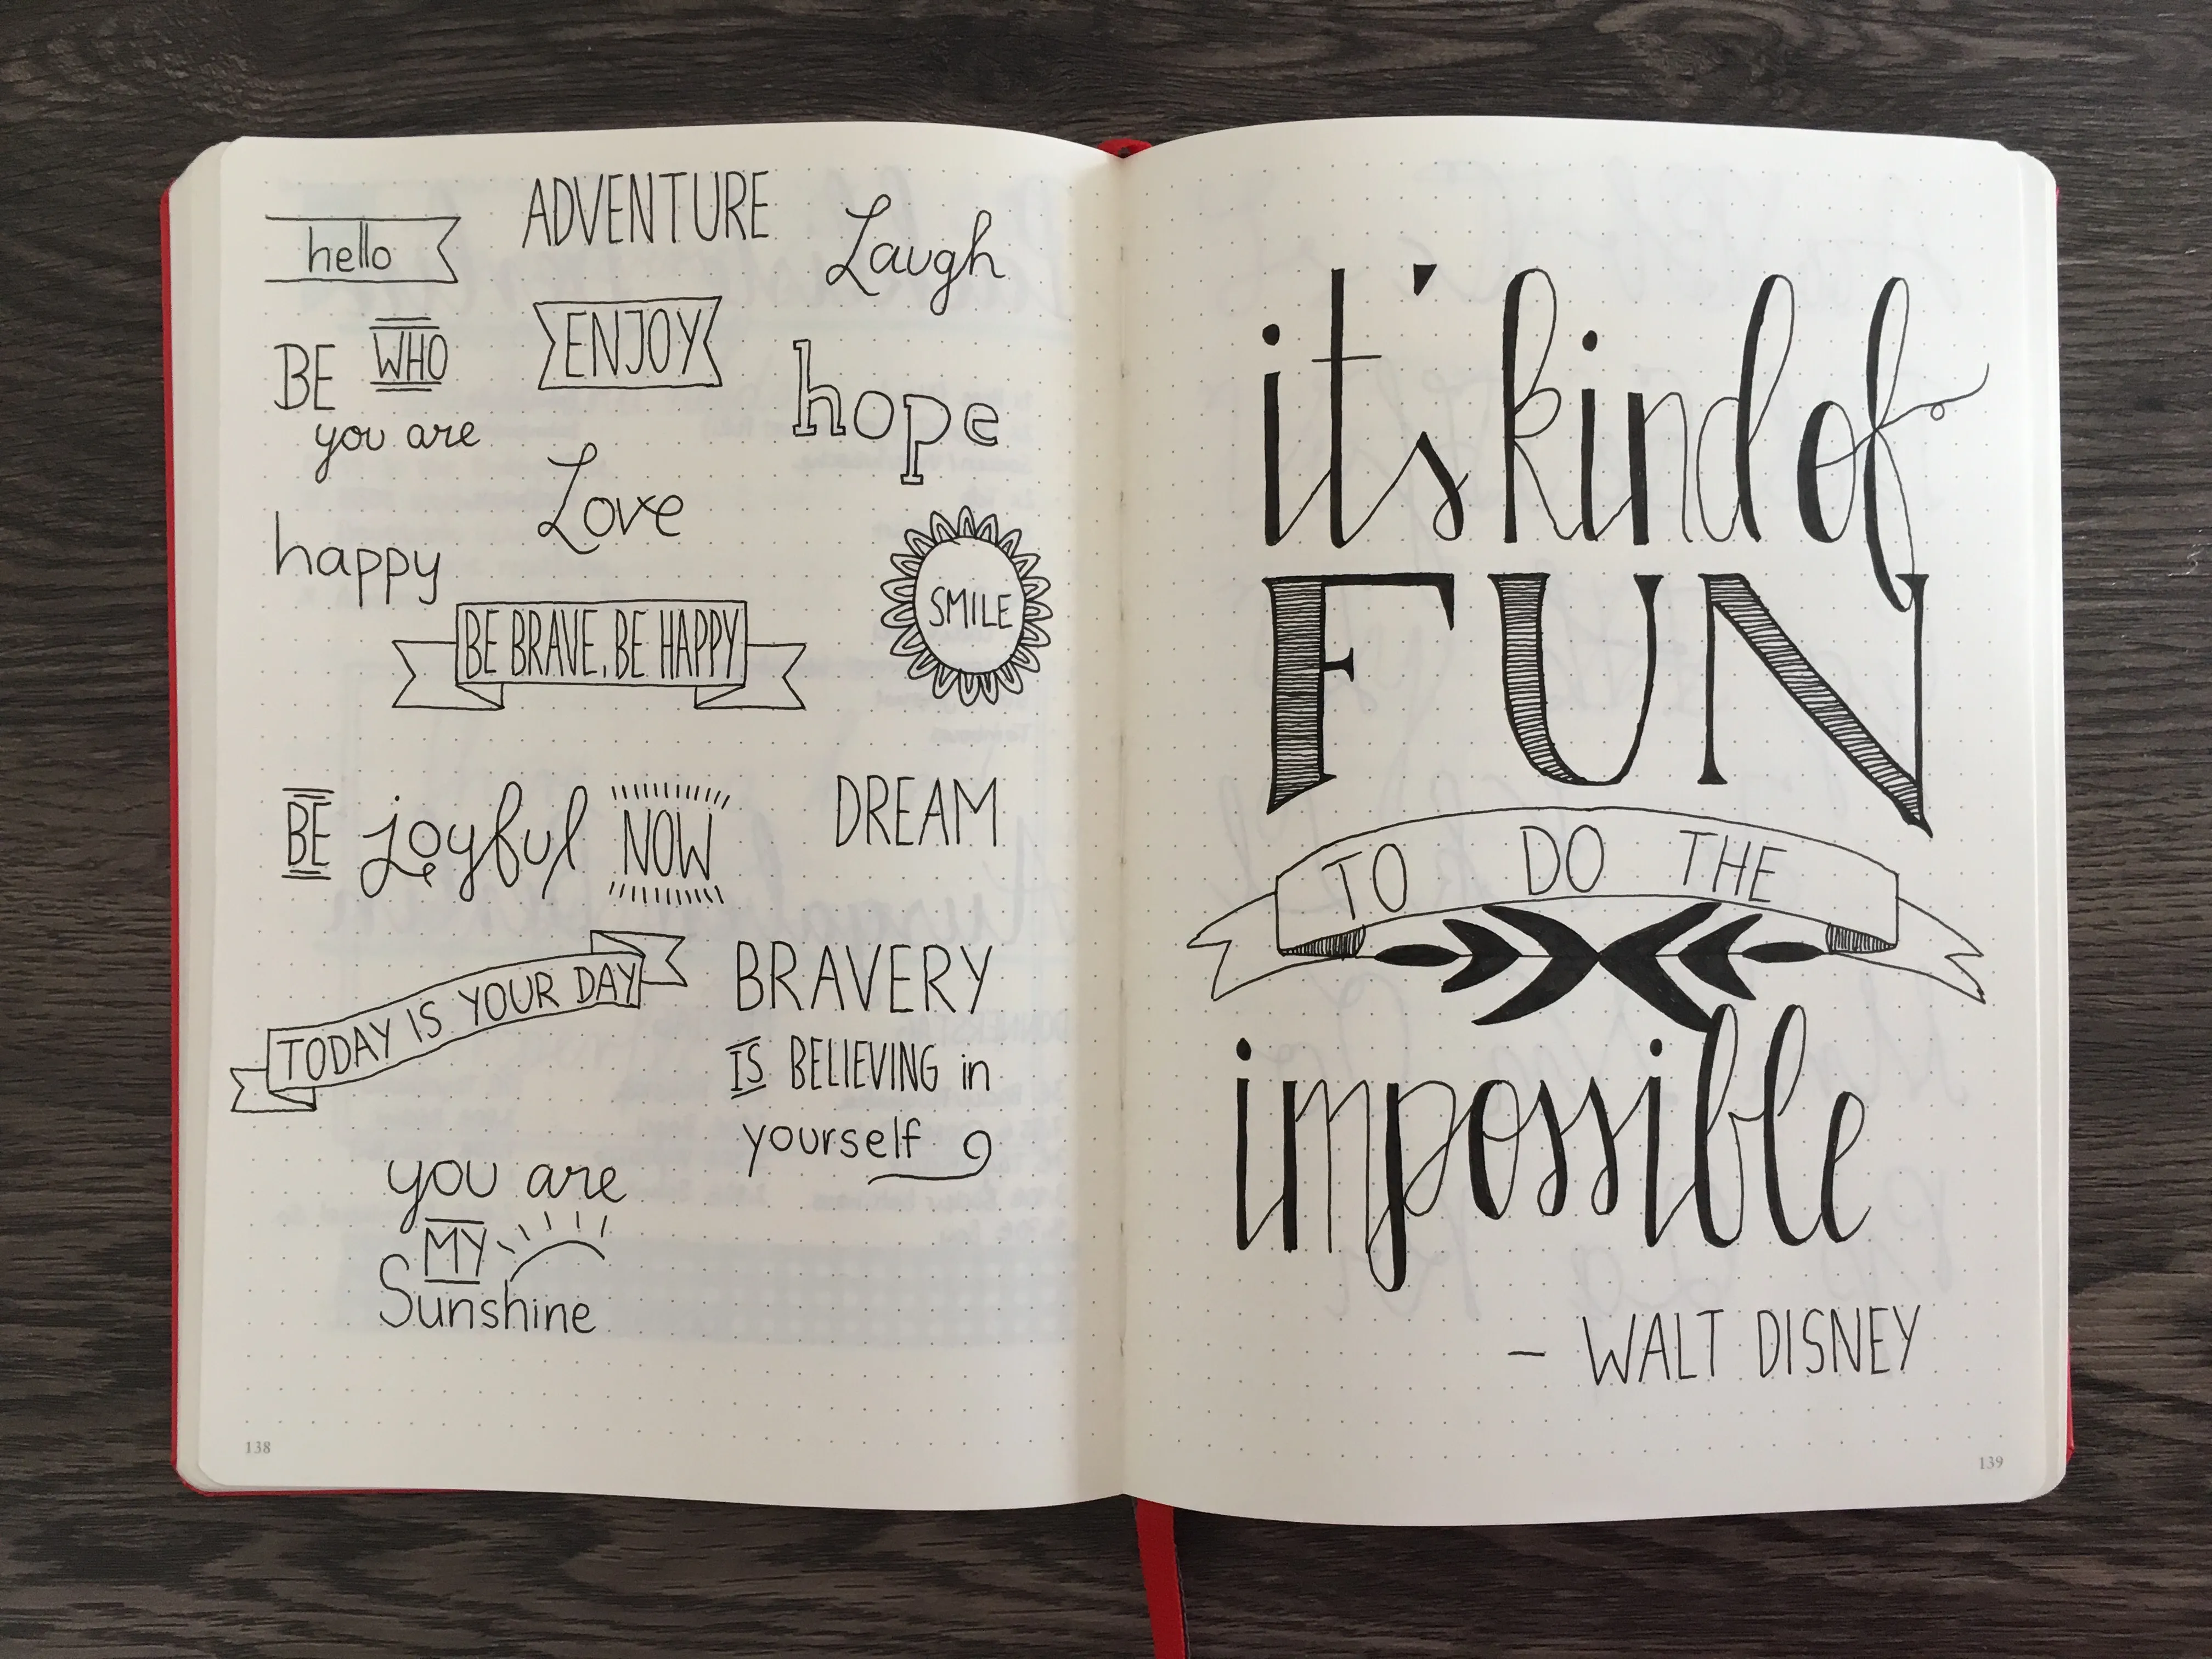 hello
ADVENTURE
Laugh
BE WHO
you are
ENJOY
hope
Love
happy
SMILE
BE BRAVE. BE HAPPY
BE joyful NOW
DREAM
TODAY IS YOUR DAY
BRAVERY
IS BELIEVING in
yourself
you are
MY
Sunshine
138
it's kind of
FUN
TO DO THE
impossible
– WALT DISNEY
139